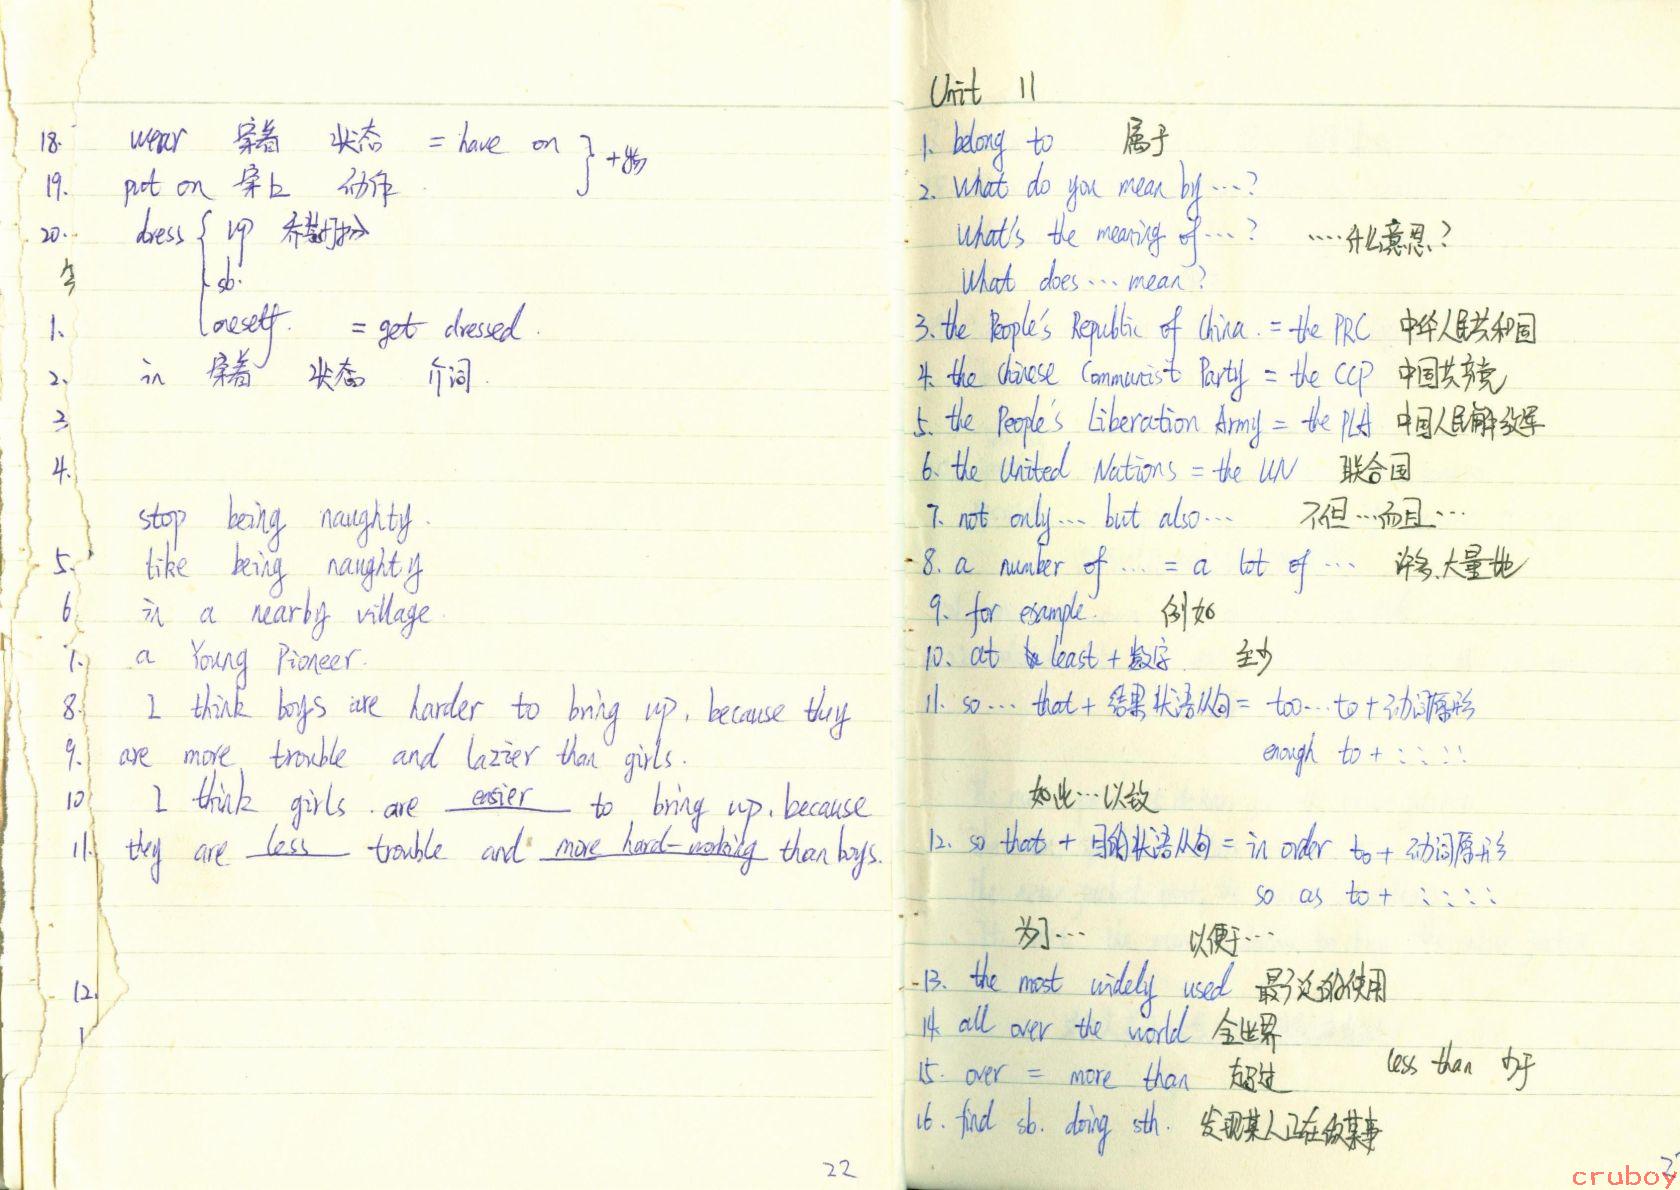 18. wear 穿着 状态 = have on } +物
19. put on 穿上 动作.
20. dress { up 乔装打扮
sb.
oneself. = get dressed.
1.
2. in 穿着 状态 介词.
3
4.
stop being naughty.
5. like being naughty
6 in a nearby village.
7. a Young Pioneer.
8. I think boys are harder to bring up, because they
9. are more trouble and lazier than girls.
10 I think girls are easier to bring up, because
11. they are less trouble and more hard-working than boys.
12.
1
22
Unit 11
1. belong to 属于
2. What do you mean by ...?
What's the meaning of ...? ....什么意思?
What does ... mean?
3. the People's Republic of China. = the PRC 中华人民共和国
4. the Chinese Communist Party = the CCP 中国共产党
5. the People's Liberation Army = the PLA 中国人民解放军
6. the United Nations = the UN 联合国
7. not only ... but also ... 不但...而且...
8. a number of ... = a lot of ... 许多、大量地
9. for example. 例如
10. at least + 数字 至少
11. so ... that + 结果状语从句 = too...to + 动词原形
enough to + : : : :
如此...以致
12. so that + 目的状语从句 = in order to + 动词原形
so as to + : : : :
为了... 以便于...
13. the most widely used 最广泛的使用
14. all over the world 全世界
15. over = more than 超过 less than 少于
16. find sb. doing sth. 发现某人正在做某事
cruboy